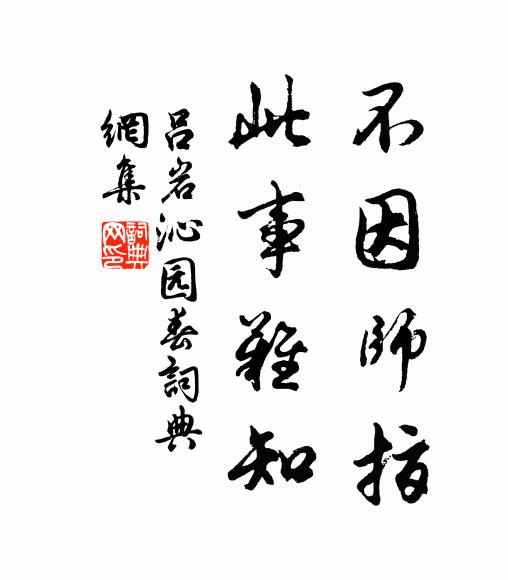 不因師指
此事難知
吕岩沁园春詞典
網集
詞典
网印